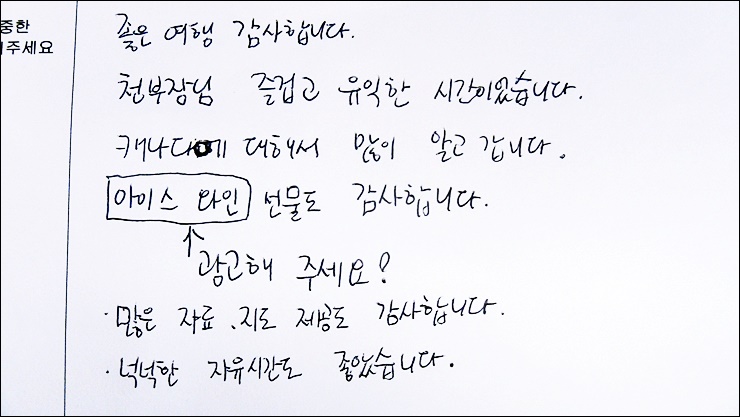 중한
주세요
좋은 여행 감사합니다.
천부장님 즐겁고 유익한 시간이었습니다.
캐나다에 대해서 많이 알고 갑니다.
아이스 와인 선물도 감사합니다.
광고해 주세요?
· 많은 자료.지도 제공도 감사합니다.
· 넉넉한 자유시간도 좋았습니다.